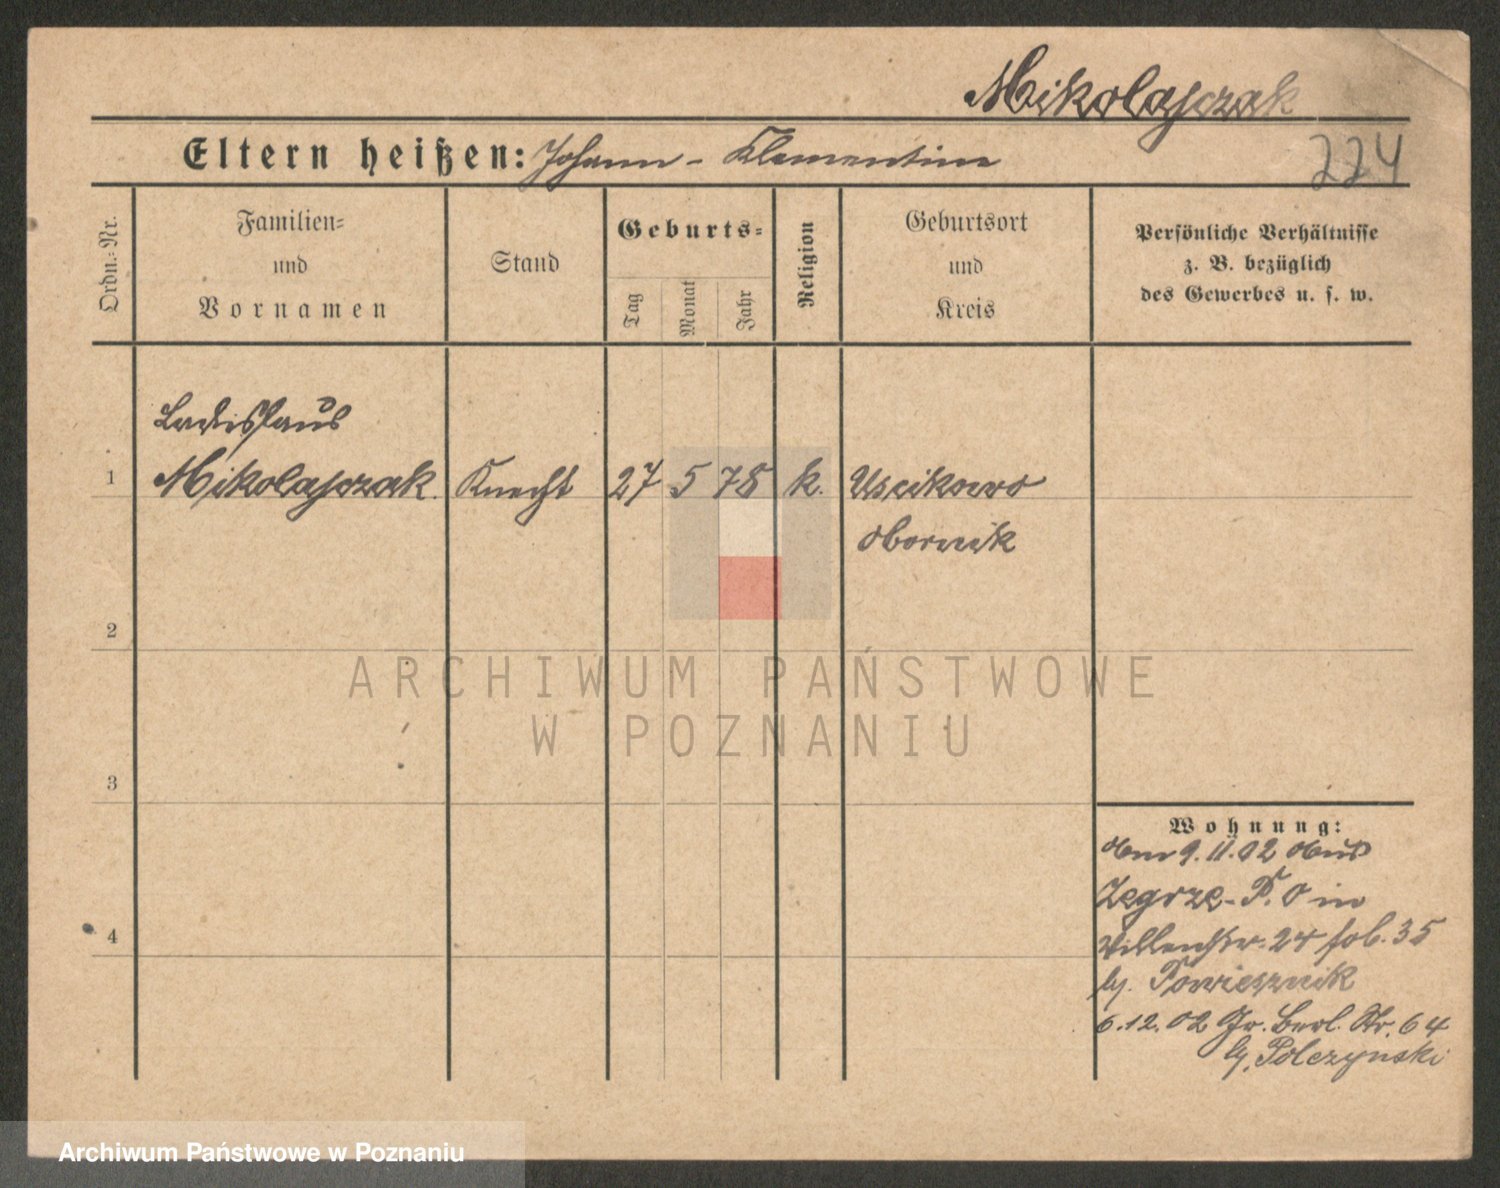 Mikolajczak
Eltern heißen: Johann - Klementine
224
Ordn.-Nr.
Familien-
und
Vornamen
Stand
Geburts-
Tag
Monat
Jahr
Religion
Geburtsort
und
Kreis
Persönliche Verhältnisse
z. B. bezüglich
des Gewerbes u. s. w.
Ladislaus
1 Mikolajczak. Knecht 27 5 78 k. Uscikowo
Obornik
2
ARCHIWUM PAŃSTWOWE
W POZNANIU
3
Wohnung:
9.11.02 aus
Zegrze - P. O in
24 35
by. Powiesznik
4
6.12.02 Gr. Berl. Str. 64
by. Polczynski
Archiwum Państwowe w Poznaniu